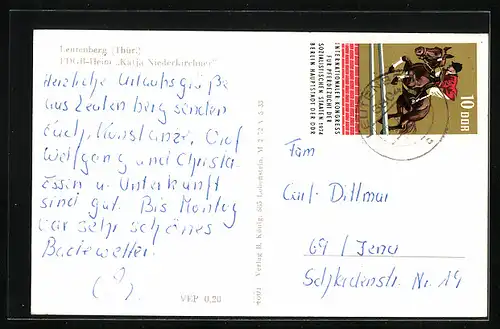 Leutenberg (Thür.)
FDGB-Heim „Katja Niederkirchner"
Herzliche Urlaubsgrüße
aus Leutenberg senden
Euch, Konstanze, Olaf
Wolfgang und Christa.
Essin u. Unterkunft
sind gut. Bis Montag
war sehr schönes
Badewetter.
(?)
VEP 0,20
Verlag R. König, 685 Lobenstein
INTERNATIONALER KONGRESS
FÜR PFERDEZUCHT DER
SOZIALISTISCHEN STAATEN 1974
BERLIN HAUPTSTADT DER DDR
10 DDR
Fam
Curt Dittmar
69 / Jena
Schladenstr. Nr. 19